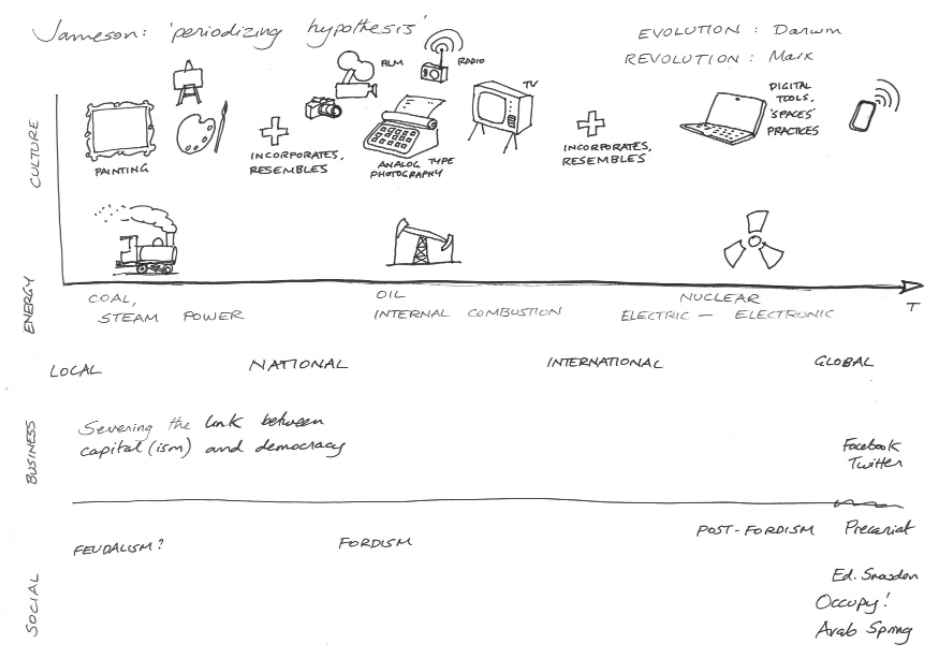 Jameson: 'periodizing hypothesis'
EVOLUTION : Darwin
REVOLUTION : Marx
CULTURE
PAINTING
+
INCORPORATES,
RESEMBLES
FILM
RADIO
ANALOG TYPE
PHOTOGRAPHY
TV
+
INCORPORATES,
RESEMBLES
DIGITAL
TOOLS,
'SPACES'
PRACTICES
ENERGY
COAL,
STEAM POWER
OIL
INTERNAL COMBUSTION
NUCLEAR
ELECTRIC — ELECTRONIC
T
LOCAL
NATIONAL
INTERNATIONAL
GLOBAL
BUSINESS
Severing the link between
capital(ism) and democracy
Facebook
Twitter
SOCIAL
FEUDALISM?
FORDISM
POST-FORDISM
Precariat
Ed. Snowden
Occupy!
Arab Spring